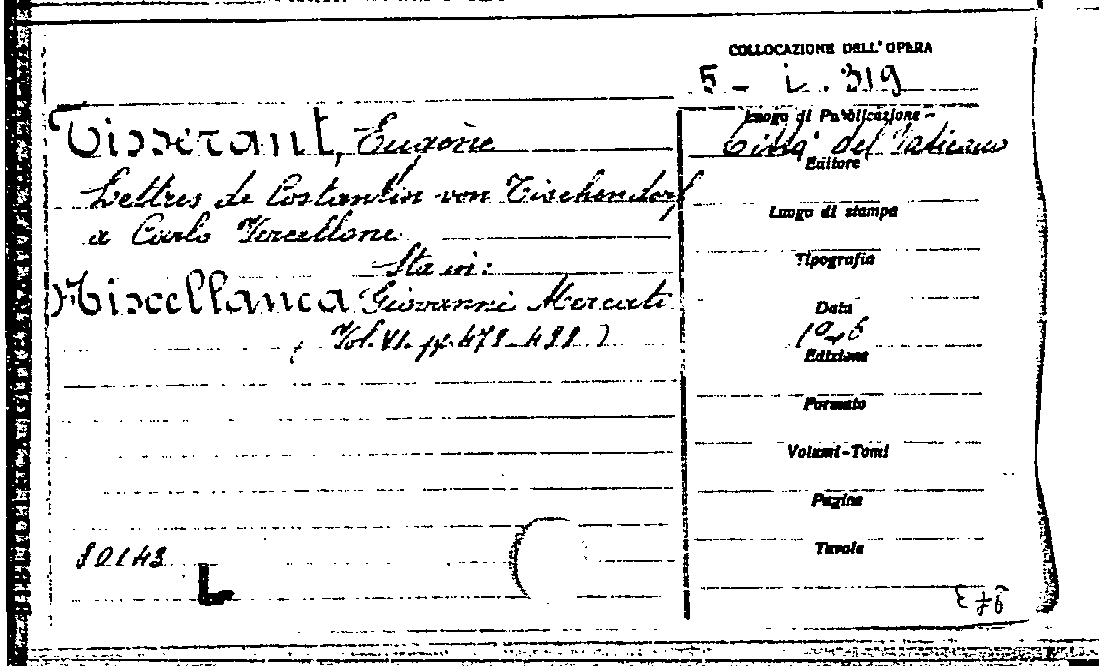 COLLOCAZIONE DELL'OPERA
5 - L. 319
Tisserant, Eugène
Lettres de Costantin von Tischendorf
a Carlo Vercellone
Sta in:
Miscellanea Giovanni Mercati
( Vol. VI. pp. 479-498 )
80143
L
Luogo di Pubblicazione -
Città del Vaticano
Editore
Luogo di stampa
Tipografia
Data
Edizione
Formato
Volumi-Tomi
Pagine
Tavole